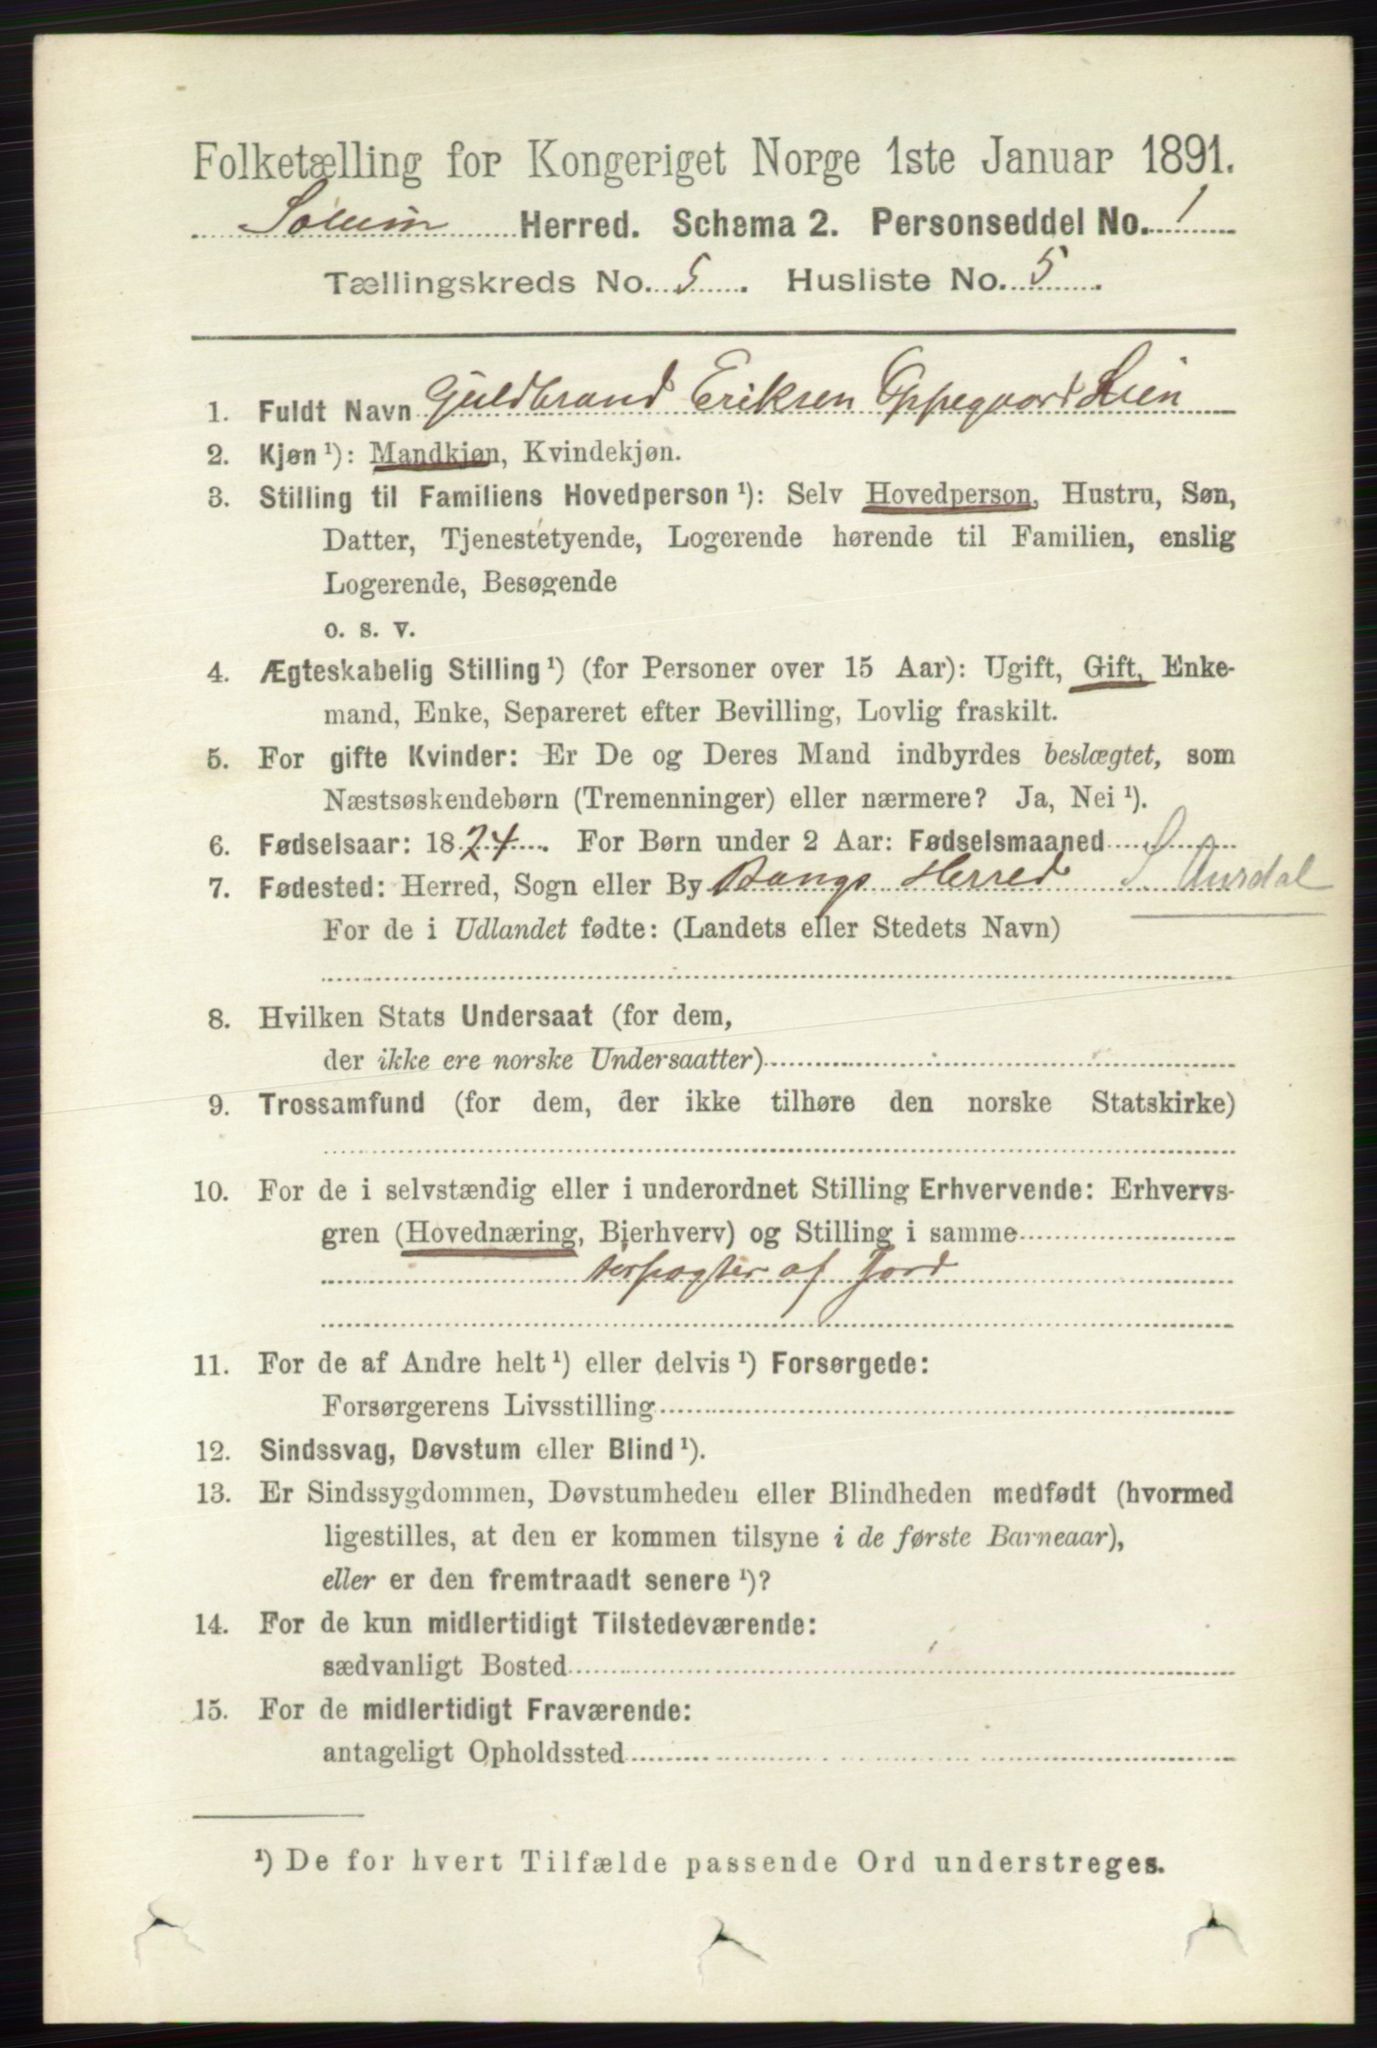 Folketælling for Kongeriget Norge 1ste Januar 1891.
Solum Herred. Schema 2. Personseddel No. 1
Tællingskreds No. 5. Husliste No. 5.
1. Fuldt Navn Guldbrand Eriksen Oppegaard Lien
2. Kjøn ¹): Mandkjøn, Kvindekjøn.
3. Stilling til Familiens Hovedperson ¹): Selv Hovedperson, Hustru, Søn,
Datter, Tjenestetyende, Logerende hørende til Familien, enslig
Logerende, Besøgende
o. s. v.
4. Ægteskabelig Stilling ¹) (for Personer over 15 Aar): Ugift, Gift, Enke-
mand, Enke, Separeret efter Bevilling, Lovlig fraskilt.
5. For gifte Kvinder: Er De og Deres Mand indbyrdes beslægtet, som
Næstsøskendebørn (Tremenninger) eller nærmere? Ja, Nei ¹).
6. Fødselsaar: 1824. For Børn under 2 Aar: Fødselsmaaned
7. Fødested: Herred, Sogn eller By Bangs Herred S Aurdal
For de i Udlandet fødte: (Landets eller Stedets Navn)
8. Hvilken Stats Undersaat (for dem,
der ikke ere norske Undersaatter)
9. Trossamfund (for dem, der ikke tilhøre den norske Statskirke)
10. For de i selvstændig eller i underordnet Stilling Erhvervende: Erhvervs-
gren (Hovednæring, Bierhverv) og Stilling i samme
forpagter af Jord
11. For de af Andre helt ¹) eller delvis ¹) Forsørgede:
Forsørgerens Livsstilling
12. Sindssvag, Døvstum eller Blind ¹).
13. Er Sindssygdommen, Døvstumheden eller Blindheden medfødt (hvormed
ligestilles, at den er kommen tilsyne i de første Barneaar),
eller er den fremtraadt senere ¹)?
14. For de kun midlertidigt Tilstedeværende:
sædvanligt Bosted
15. For de midlertidigt Fraværende:
antageligt Opholdssted
¹) De for hvert Tilfælde passende Ord understreges.